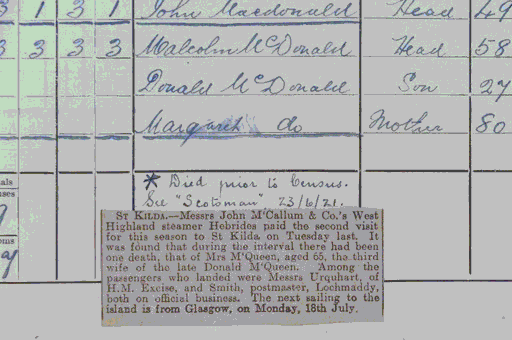 3 1 3 1 John Macdonald Head 49
3 3 3 3 Malcolm McDonald Head 58
Donald McDonald Son 27
Margaret do Mother 80
* Died prior to Census.
See "Scotsman" 23/6/21.
ST KILDA.—Messrs John M'Callum & Co.'s West
Highland steamer Hebrides paid the second visit
for this season to St Kilda on Tuesday last. It
was found that during the interval there had been
one death, that of Mrs M'Queen, aged 65, the third
wife of the late Donald M'Queen. Among the
passengers who landed were Messrs Urquhart, of
H.M. Excise, and Smith, postmaster, Lochmaddy,
both on official business. The next sailing to the
island is from Glasgow, on Monday, 18th July.